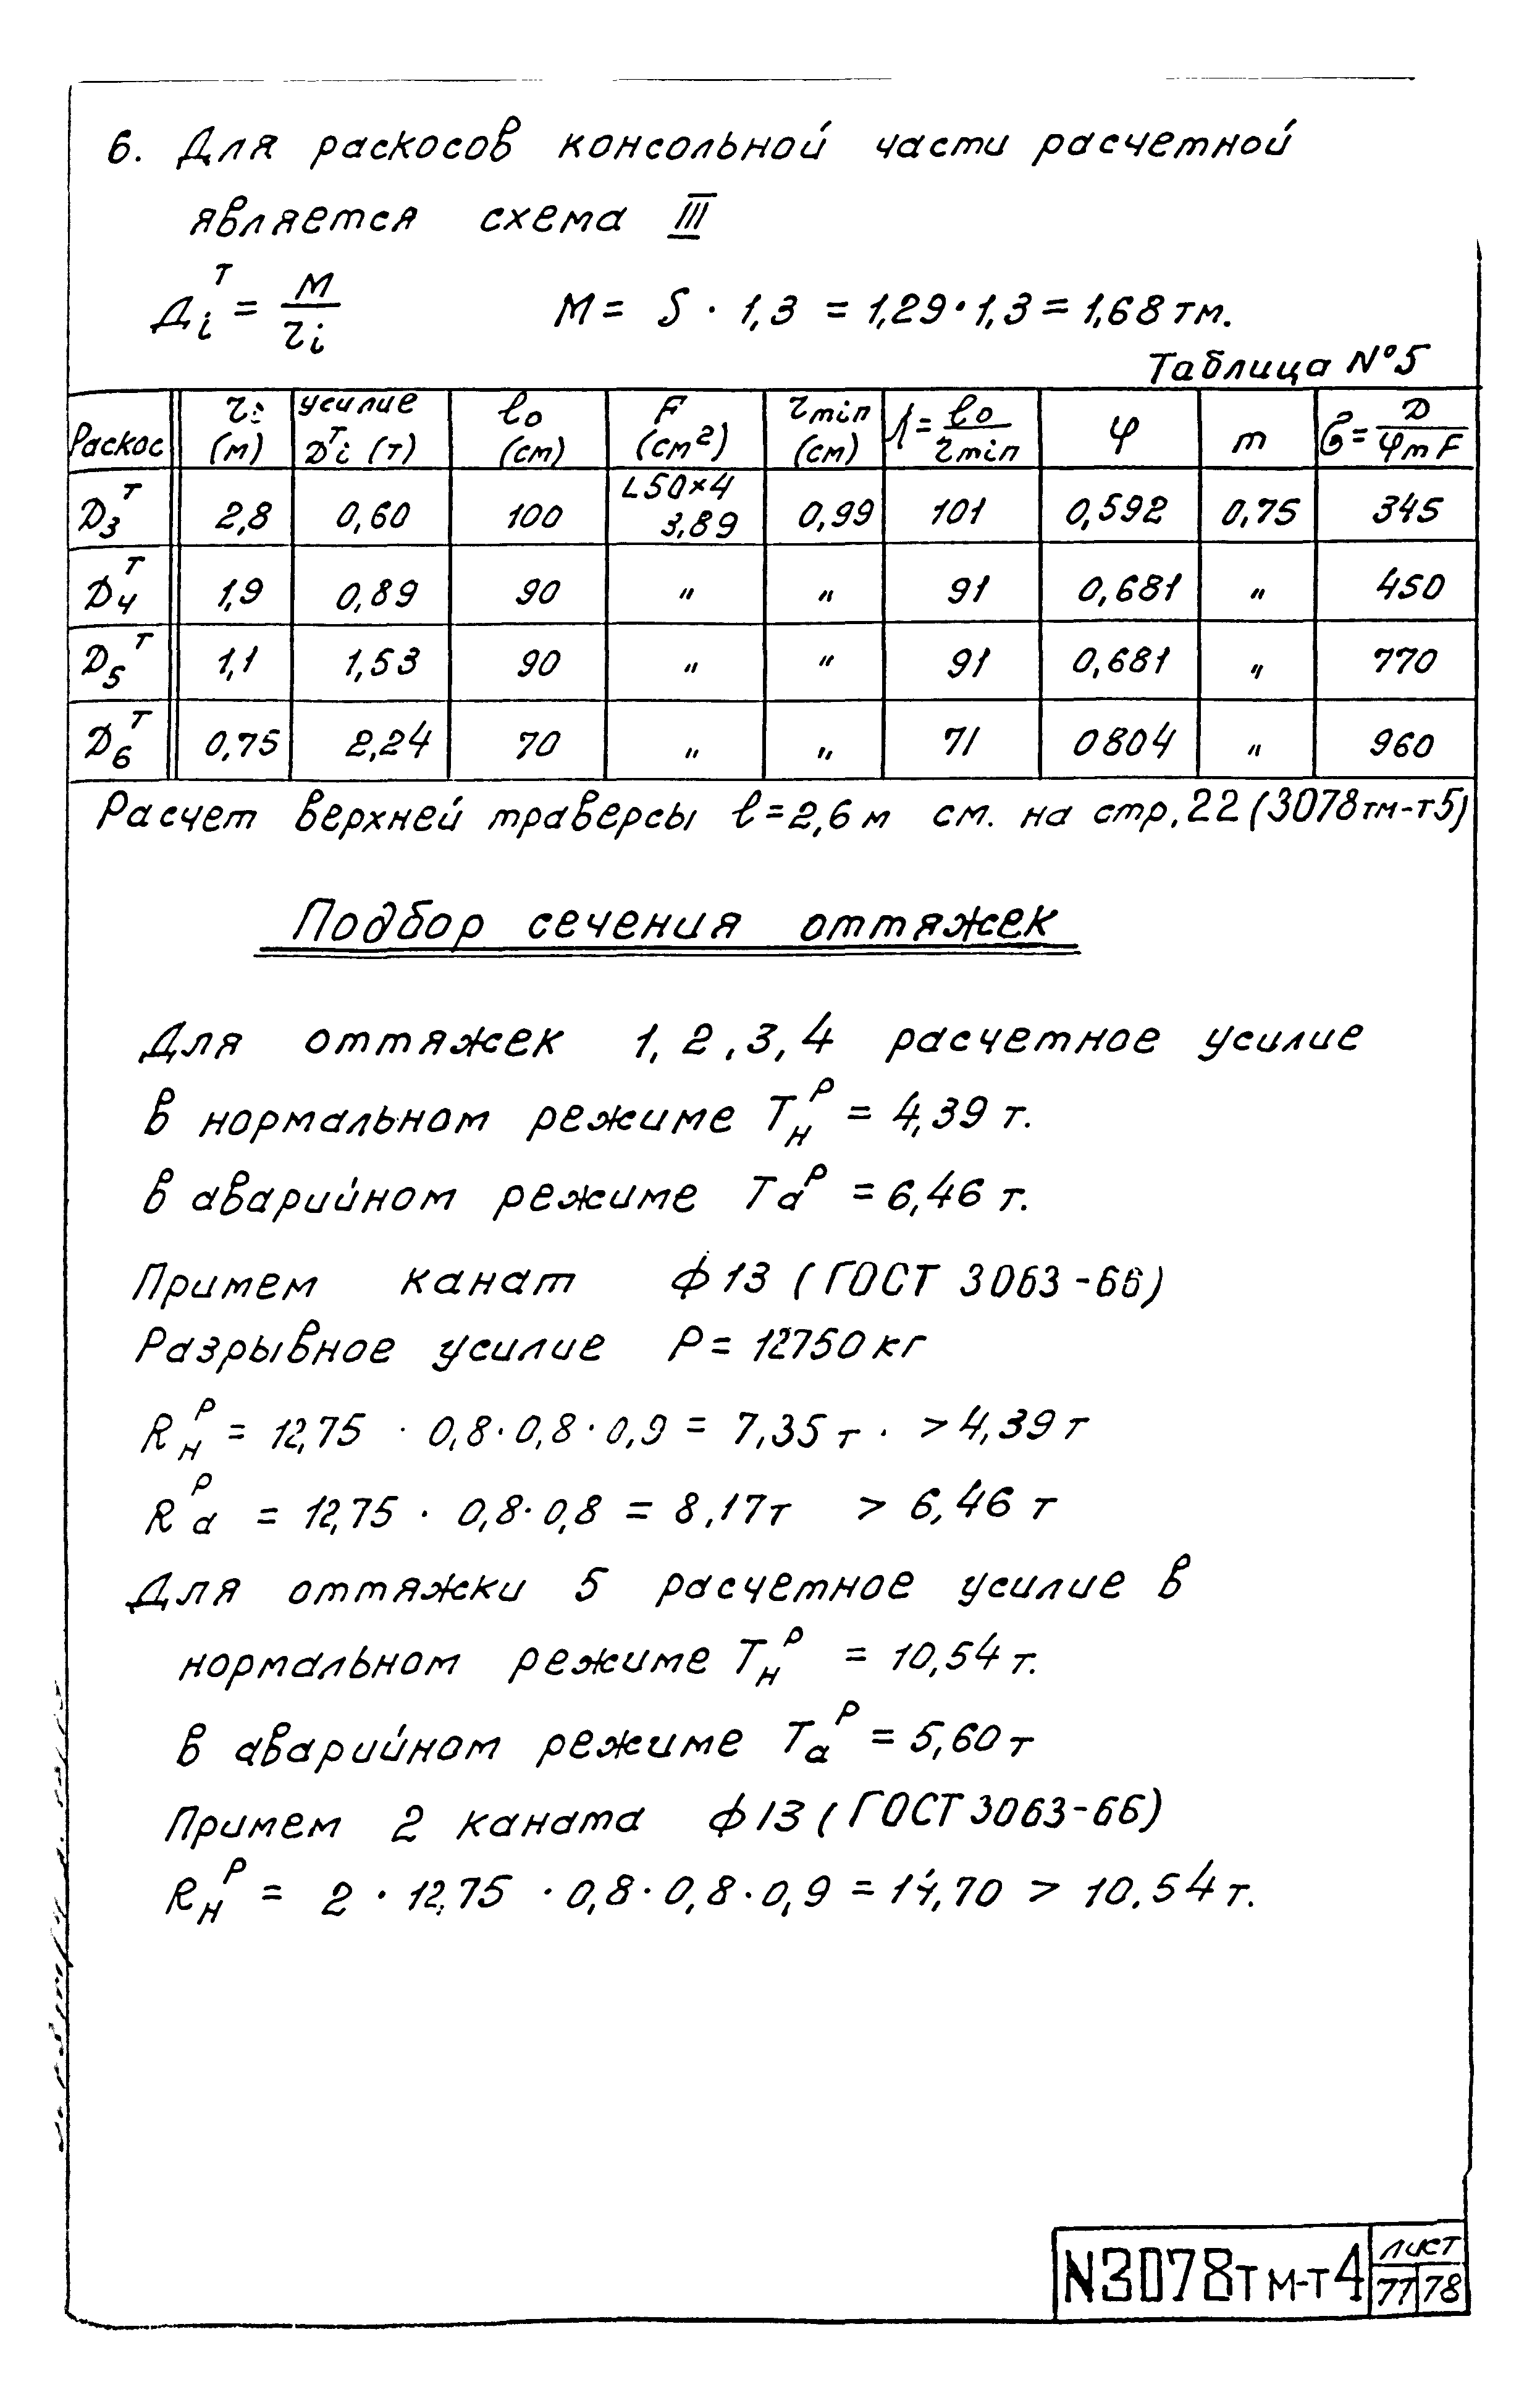 6. Для раскосов консольной части расчетной
является схема III
Дᵢᵀ = М / rᵢ   М = S · 1,3 = 1,29 · 1,3 = 1,68 тм.
Таблица №5
Раскос | rᵢ (м) | усилие Dᵀᵢ (т) | ℓ₀ (см) | F (см²) | r min (см) | λ = ℓ₀ / r min | φ | m | σ = D / φ m F
D₃ᵀ | 2,8 | 0,60 | 100 | L50×4 3,89 | 0,99 | 101 | 0,592 | 0,75 | 345
D₄ᵀ | 1,9 | 0,89 | 90 | " | " | 91 | 0,681 | " | 450
D₅ᵀ | 1,1 | 1,53 | 90 | " | " | 91 | 0,681 | " | 770
D₆ᵀ | 0,75 | 2,24 | 70 | " | " | 71 | 0804 | " | 960
Расчет верхней траверсы ℓ=2,6 м см. на стр. 22 (3078тм-т5)
Подбор сечения оттяжек
Для оттяжек 1, 2, 3, 4 расчетное усилие
в нормальном режиме Tнᴾ = 4,39 т.
в аварийном режиме Tаᴾ = 6,46 т.
Примем канат ф13 (ГОСТ 3063-66)
Разрывное усилие P = 12750 кг
Rнᴾ = 12,75 · 0,8 · 0,8 · 0,9 = 7,35 т. > 4,39 т
Rаᴾ = 12,75 · 0,8 · 0,8 = 8,17 т > 6,46 т
Для оттяжки 5 расчетное усилие в
нормальном режиме Tнᴾ = 10,54 т.
в аварийном режиме Tаᴾ = 5,60 т
Примем 2 каната ф13 (ГОСТ 3063-66)
Rнᴾ = 2 · 12,75 · 0,8 · 0,8 · 0,9 = 14,70 > 10,54 т.
N3078тм-т4
лист
77 78